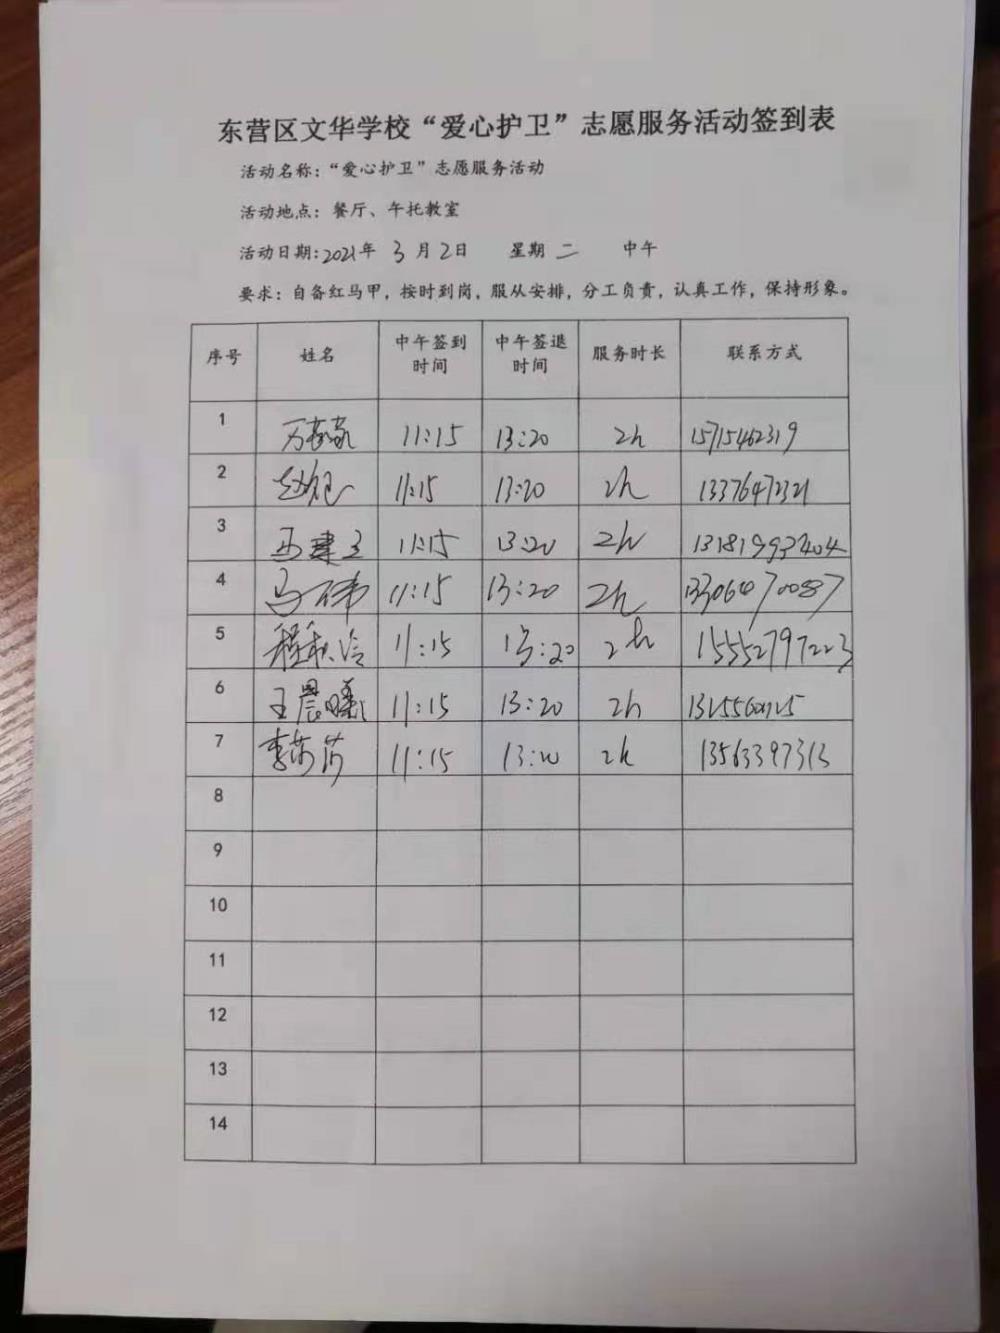 东营区文华学校“爱心护卫”志愿服务活动签到表
活动名称：“爱心护卫”志愿服务活动
活动地点：餐厅、午托教室
活动日期:2021年 3月2日 星期二 中午
要求：自备红马甲，按时到岗，服从安排，分工负责，认真工作，保持形象。
序号 姓名 中午签到时间 中午签退时间 服务时长 联系方式
1 11:15 13:20 2h 15715462319
2 11:15 13:20 2h 13376472321
3 11:15 13:20 2h
4 马伟 11:15 13:20 2h 13306470087
5 程秋玲 11:15 13:20 2h 15552797223
6 王晨曦 11:15 13:20 2h
7 李莎莎 11:15 13:20 2h 13563397313
8
9
10
11
12
13
14